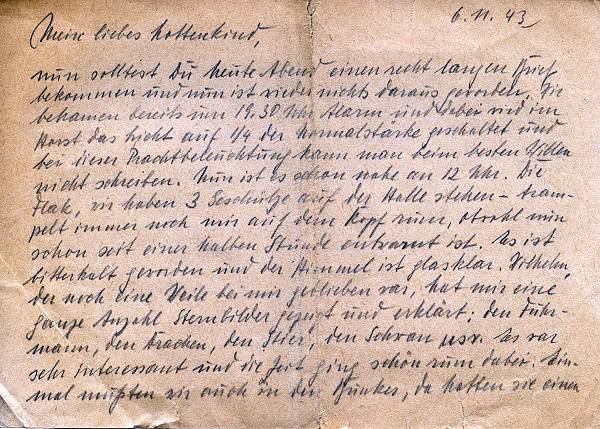 6.11.43
Mein liebes Kottenkind,
nun solltest Du heute Abend einen recht langen Brief
bekommen und nun ist wieder nichts daraus geworden. Wir
bekamen bereits um 19.30 Uhr Alarm und dabei wird im
Horst das Licht auf 1/4 der Normalstärke geschaltet und
bei dieser Prachtbeleuchtung kann man beim besten Willen
nicht schreiben. Nun ist es schon nahe an 12 Uhr. Die
Flak, wir haben 3 Geschütze auf der Halle stehen – tram-
pelt immer noch mir auf dem Kopf rum, obwohl nun
schon seit einer halben Stunde entwarnt ist. Es ist
bitterkalt geworden und der Himmel ist glasklar. Wilhelm,
der noch eine Weile bei mir geblieben war, hat mir eine
ganze Anzahl Sternbilder gezeigt und erklärt; den Fuhr-
mann, den Drachen, den Stier, den Schwan usw. Es war
sehr interessant und die Zeit ging schön rum dabei. Ein-
mal mußten wir auch in den Bunker, da hatten sie einen